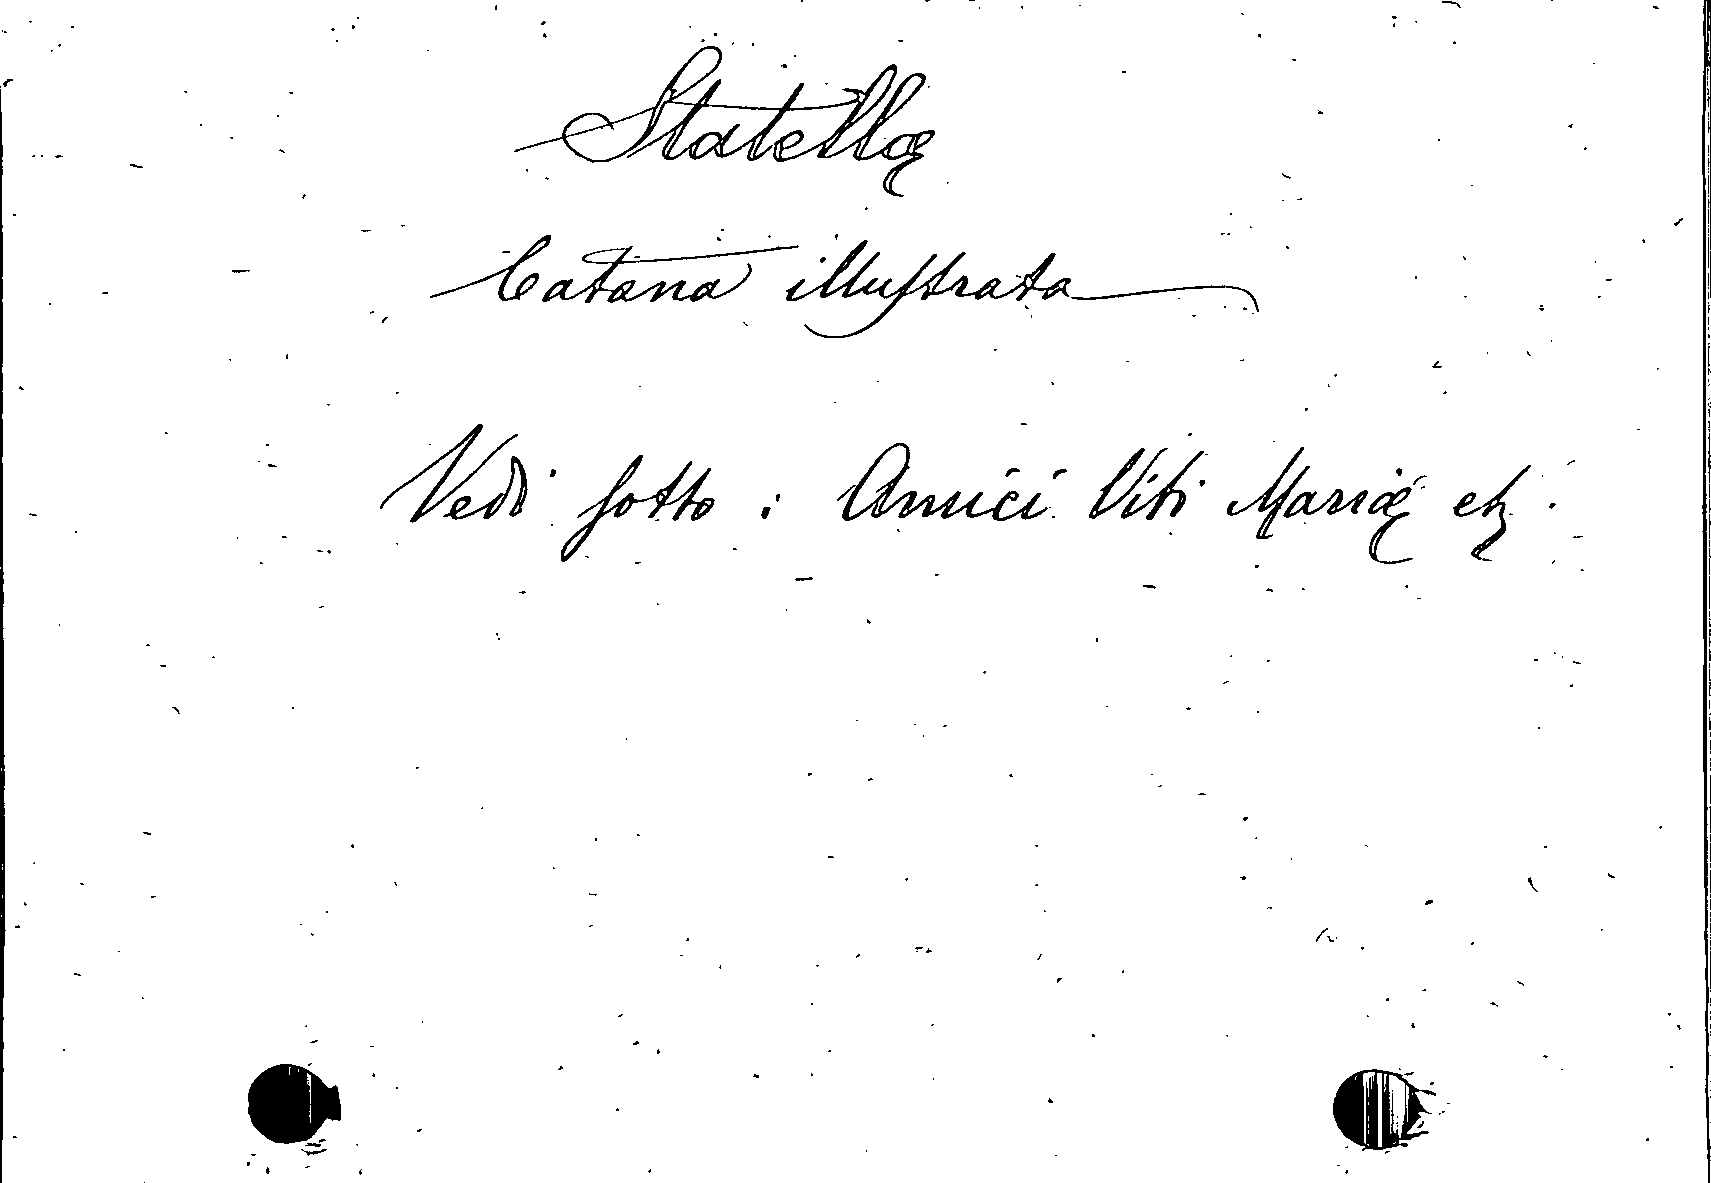 Statellæ
Catana illustrata
Vedi sotto: Amici Viti Mariæ etz.